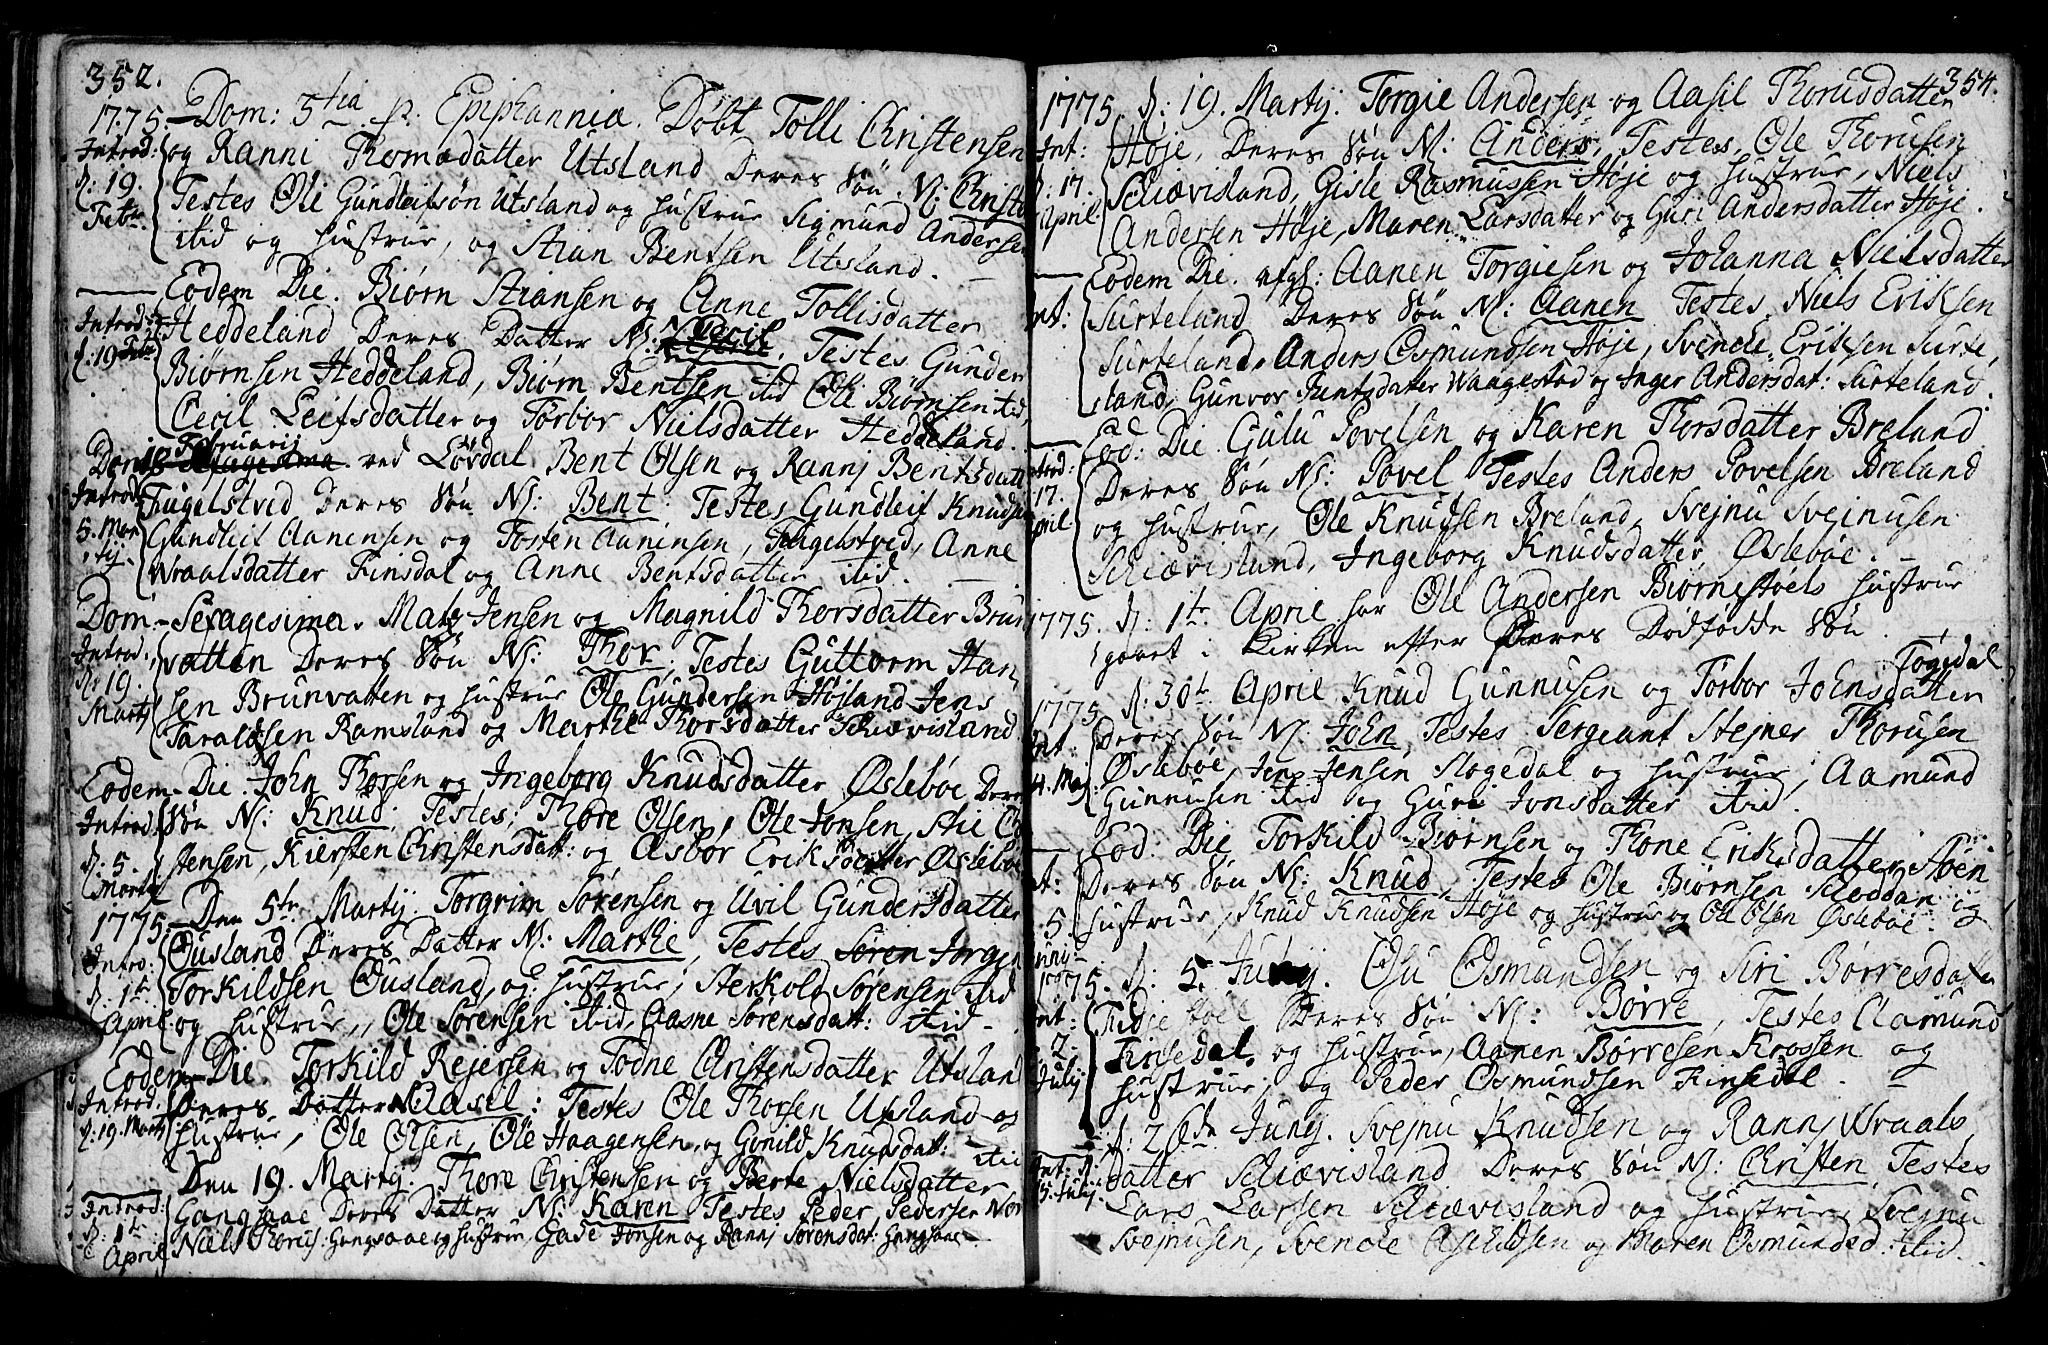 352.
1775. Dom: 5tia p. Epiphannia. Döbt Tolli Christensen
Introd: og Ranni Thomadatter Utsland Deres Søn N: Christe
d: 19. Testes Ole Gundleifsøn Utsland og Hustrue Sigmund Andersen
Febr. itid og Hustrue, og Stian Bentsen Utsland.
Eodem Die. Biørn Stiansen og Anne Tollisdatter
Introd: Heddeland Deres Datter N: Cecil. Testes Gunder
d: 19 Febr Biørnsen Heddeland, Biørn Bentsen itid Ole Biørnsen itid,
Cecil Leifsdatter og Torbor Nielsdatter Heddeland.
18 Februarij
Dom: Sexagesima. ved Løvdal Bent Olsen og Rannj Bentsdatt
Introd: Fugelstvid Deres Søn N: Bent: Testes Gundleif Knudsen
5. Mar Gundleif Aanensen og Tosten Aanensen, Fugelstved, Anne
tij. Wraalsdatter Finsdal og Anne Bentsdatter itid.
Dom. Sexagesima. Matz Jensen og Magnild Thorsdatter Brun
Introd. vatten Deres Søn N: Thor, Testes Guttorm Han
d: 19. sen Brunvatten og Hustrue Ole Gundersen Højland Jens
Martij Taraldsen Ramsland og Marthe Thorsdatter Schævisland
Eodem Die. John Thorsen og Ingeborg Knudsdatter Øslebøe Deres
Introd. Søn N: Knud. Testes: Thore Olsen, Ole Jonsen, Stie Chri
d: 5. stensen, Kiersten Christensdatt: og Asbor Eriksdatter Øslebøe
Martij
1775. Den 5te Martij. Torgrim Sørensen og Uvil Gundersdatter
Introd: Ousland Deres Datter N: Marthe, Testes Søren Jørgen
d. 1te Torkildsen Ousland, og Hustrue, Sterkold Sørensen itid
April. og Hustrue, Ole Sørensen itid, Aasne Sørensdatt: itid.
Eodem Die. Torkild Rejersen og Todne Christensdatter Utsland
Introd. Deres Datter N Aasel: Testes Ole Thorsen Utsland og
d: 19. Martj Hustrue, Ole Olsen, Ole Haagensen, og Gonild Knudsdat: itid
Den 19. Martij. Thore Christensen og Berte Nielsdatter
Introd: Gangsaae Deres Datter N: Karen Testes Peder Pedersen Nor
d: 1te
April Niels Thorus: Gangsaae og Hustrue, Gade Jonsen og Rannj Sørensdat: Gangsaae
354.
1775 d: 19. Martij. Torgie Andersen og Aasil Thorusdatter
Int: Høje, Deres Søn N: Anders, Testes, Ole Thorusen
d: 17. Schævisland, Gisle Rasmussen Høje og Hustrue, Niels
April. Andersen Høje, Maren Larsdatter og Guri Andersdatter Høje.
Eodem Die. afgl: Aanen Torgiesen og Johanna Nielsdatter
Int: Surteland Deres Søn N: Aanen Testes, Niels Eriksen
Surteland, Anders Osmundsen Høje, Svencke Eriksen Surte,
land, Gunvor Juntsdatter Waagestad og Inger Andersdat: Surteland.
Eod: Die. Gulu Povelsen og Karen Thorsdatter Breland
Introd: Deres Søn N: Povel Testes Anders Povelsen Breland
17. og Hustrue, Ole Knudsen Breland, Svejnu Svejnusen
April Schævisland, Ingeborg Knudsdatter Øslebøe.
1775. d: 1te April har Ole Andersen Biørnestøels Hustrue
gaaet i Kirken efter Deres Dödfødde Søn.
Togedal
1775 d: 30te April Knud Gunnusen og Torbor Johnsdatter
Int: Deres Søn N: John, Testes Sergeant Stejner Thorusen
4. Maj: Øslebøe, Jens Jensen Slogedal og Hustrue, Aamund
Gunnusen itid og Guri Jonsdatter itid.
Eod: Die Torkild Biørnsen og Thone Eriksdatter Støen
Int: Deres Søn N: Knud, Testes Ole Biørnsen Scheddan og
5 Hustrue, Knud Knudsen Høje og Hustrue og Ole Olsen Øslebøe.
Junij
1775. d: 5. Junij. Osu Osmundsen og Siri Børresdatter
Int: Deres Søn N: Børre, Testes Aamund
2. Finsedal, og Hustrue, Aanen Børresen Krossen og
Julij Hustrue, og Peder Osmundsen Finsedal.
d: 26de Junij. Svejnu Knudsen og Rannj Wraals,
Int: d: datter Schævisland Deres Søn N: Christen, Testes
15. Julij. Lars Larsen Schævisland og Hustrue, Svejnu
Svejnusen, Svencke Aschildsen og Maren Osmundsd: itid.